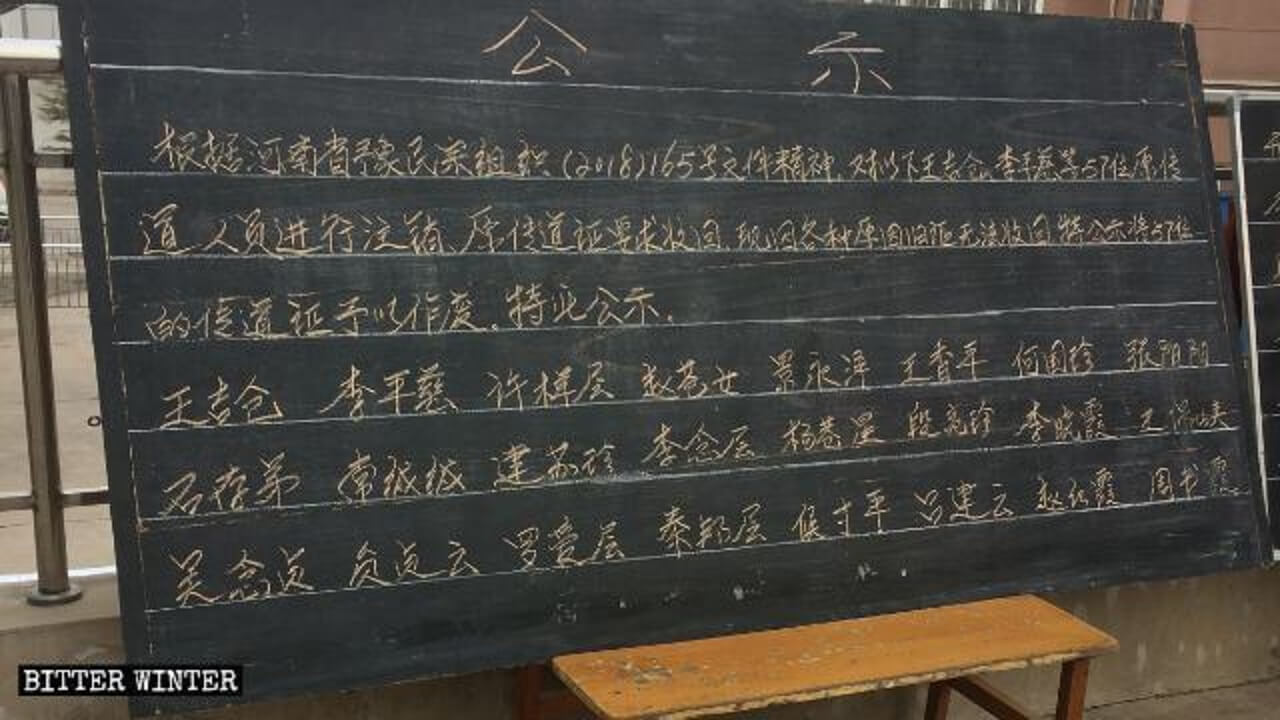 公示
根据河南省豫民宗组织(2018)165号文件精神,对以下王吉仓、李平慈等57位原传
道人员进行注销、原传道证要求收回,现因各种原因旧证无法收回,特公示将57位
的传道证予以作废。特此公示.
王吉仓 李平慈 许样层 赵苍女 景永泽 王香平 何围珍 张阳阳
石存弟 常绒绒 建苏珍 李念层 杨苍湿 段亮珍 李晓霞 王保峡
吴念贞 负贞云 罗爱层 秦郑层 侯寸平 吕建云 赵红霞 周书霞
BITTER WINTER